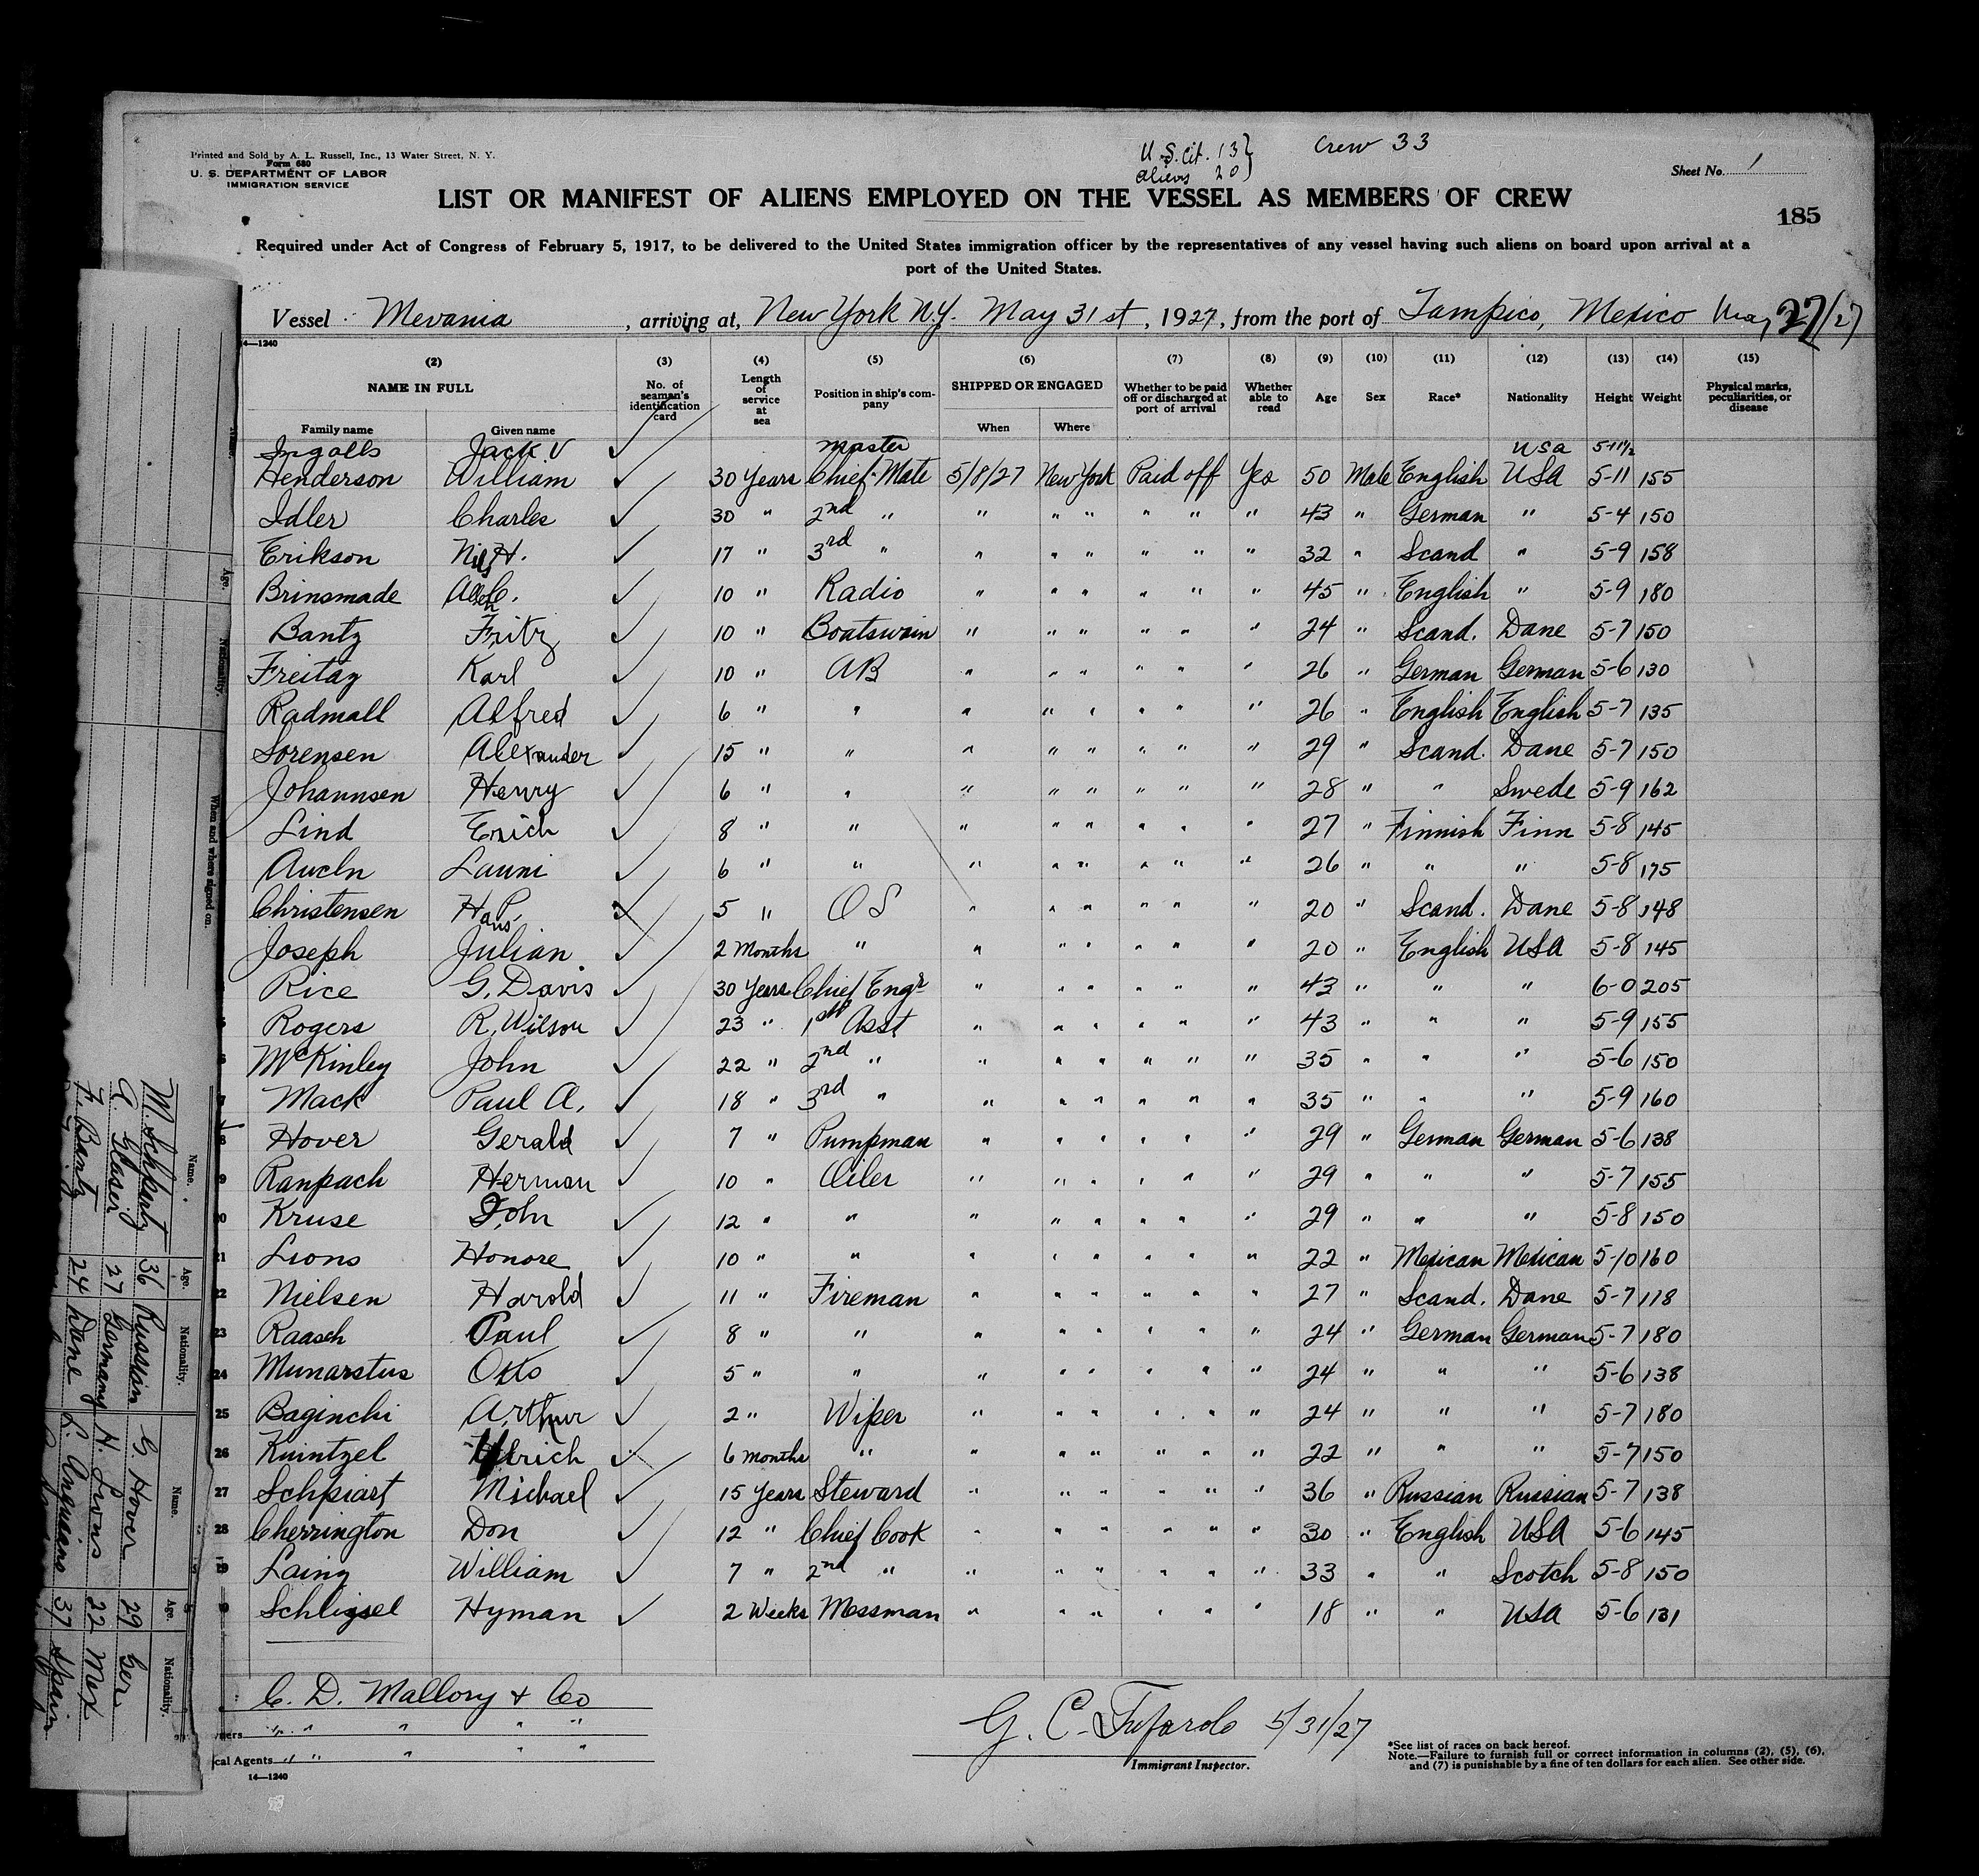 Printed and Sold by A. L. Russell, Inc., 13 Water Street, N. Y.
Form 680
U. S. DEPARTMENT OF LABOR
IMMIGRATION SERVICE
U.S. Cit. 13}
aliens 20}
Crew 33
Sheet No. 1
LIST OR MANIFEST OF ALIENS EMPLOYED ON THE VESSEL AS MEMBERS OF CREW
185
Required under Act of Congress of February 5, 1917, to be delivered to the United States immigration officer by the representatives of any vessel having such aliens on board upon arrival at a
port of the United States.
Vessel Mevania, arriving at, New York N.Y. May 31st, 1927, from the port of Tampico, Mexico May 27/27
14—1240
(2) (3) (4) (5) (6) (7) (8) (9) (10) (11) (12) (13) (14) (15)
NAME IN FULL No. of seaman's identification card Length of service at sea Position in ship's company SHIPPED OR ENGAGED Whether to be paid off or discharged at port of arrival Whether able to read Age Sex Race* Nationality Height Weight Physical marks, peculiarities, or disease
Family name Given name When Where
Ingalls Jack V ✓ master USA 5-11½
Henderson William ✓ 30 Years Chief Mate 5/8/27 New York Paid off Yes 50 Male English USA 5-11 155
Idler Charles ✓ 30 " 2nd " " " " " " " 43 " German " 5-4 150
Erikson Nils H. ✓ 17 " 3rd " " " " " " " 32 " Scand " 5-9 158
Brinsmade C. ✓ 10 " Radio " " " " " " 45 " English " 5-9 180
Bantz Fritz ✓ 10 " Boatswain " " " " " " 24 " Scand. Dane 5-7 150
Freitag Karl ✓ 10 " AB " " " " " " 26 " German German 5-6 130
Radmall Alfred ✓ 6 " " " " " " " " 26 " English English 5-7 135
Sorensen Alexander ✓ 15 " " " " " " " " 29 " Scand. Dane 5-7 150
Johannsen Henry ✓ 6 " " " " " " " " 28 " " Swede 5-9 162
Lind Erich ✓ 8 " " " " " " " " 27 " Finnish Finn 5-8 145
Launi ✓ 6 " " " " " " " " 26 " " " 5-8 175
Christensen Hans P. ✓ 5 " OS " " " " " " 20 " Scand. Dane 5-8 148
Joseph Julian ✓ 2 Months " " " " " " " 20 " English USA 5-8 145
Rice G. Davis ✓ 30 Years Chief Engr " " " " " " 43 " " " 6-0 205
Rogers R. Wilson ✓ 23 " 1st Asst " " " " " " 43 " " " 5-9 155
McKinley John ✓ 22 " 2nd " " " " " " " 35 " " " 5-6 150
Mack Paul A. ✓ 18 " 3rd " " " " " " " 35 " " " 5-9 160
Hover Gerald ✓ 7 " Pumpman " " " " " " 29 " German German 5-6 138
Ranpach Herman ✓ 10 " Oiler " " " " " " 29 " " " 5-7 155
Kruse John ✓ 12 " " " " " " " " 29 " " " 5-8 150
21 Lions Honore ✓ 10 " " " " " " " " 22 " Mexican Mexican 5-10 160
22 Nielsen Harold ✓ 11 " Fireman " " " " " " 27 " Scand. Dane 5-7 118
23 Raasch Paul ✓ 8 " " " " " " " " 24 " German German 5-7 180
24 Munarstus Otto ✓ 5 " " " " " " " " 24 " " " 5-6 138
25 Baginchi Arthur ✓ 2 " Wiper " " " " " " 24 " " " 5-7 180
26 Kuintzel Ulrich ✓ 6 months " " " " " " " 22 " " " 5-7 150
27 Schpiart Michael ✓ 15 Years Steward " " " " " " 36 " Russian Russian 5-7 138
28 Cherrington Don ✓ 12 " Chief Cook " " " " " " 30 " English USA 5-6 145
29 Laing William ✓ 7 " 2nd " " " " " " " 33 " " Scotch 5-8 150
Schligsel Hyman ✓ 2 Weeks Messman " " " " " " 18 " " USA 5-6 131
C. D. Mallory & Co
" " " " "
cal Agents " " " " "
14—1240
G. C. Tufarolo 5/31/27
Immigrant Inspector.
*See list of races on back hereof.
Note.—Failure to furnish full or correct information in columns (2), (5), (6),
and (7) is punishable by a fine of ten dollars for each alien. See other side.
Age. Nationality. When and where signed on.
Name. Age. Nationality. Name. Age. Nationality.
M. Schpiart 36 Russian G. Hover 29 Ger
C. Glaser 27 Germany H. Lions 22 Mex
F. Bantz 24 Dane L. Anguiano 37 Spain